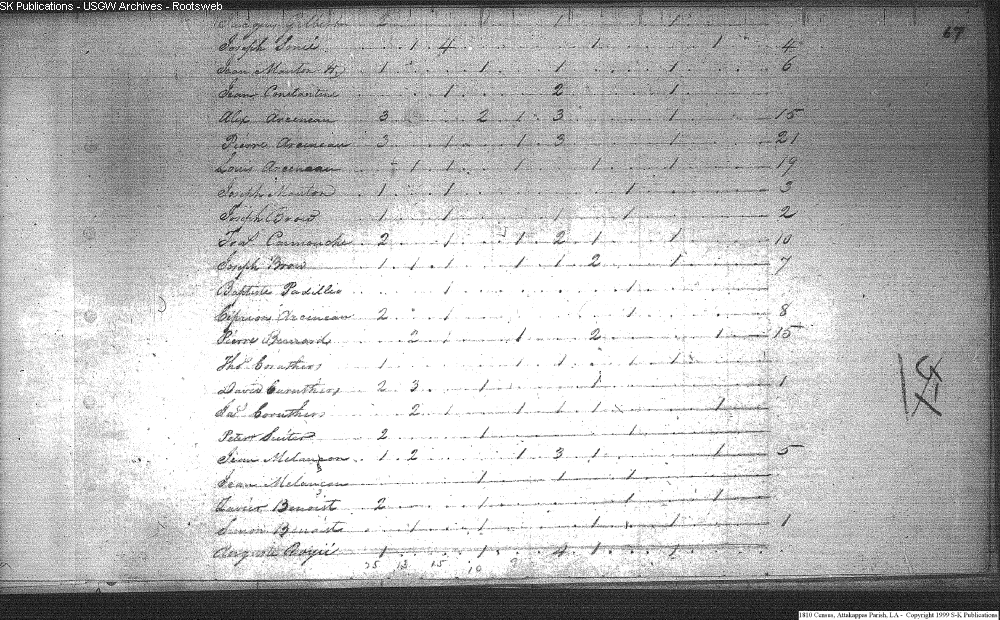 SK Publications - USGW Archives - Rootsweb
67
2 1 1
Joseph 1 4 1 1 4
Jean Mouton 1 1 1 1 6
Jean Constantine 1 2 1
Alex Arceneau 3 2 1 3 1 15
Pierre Arceneau 3 1 1 3 1 21
Louis Arceneau 1 1 1 1 1 1 19
Joseph Mouton 1 1 1 3
Joseph Brow 1 1 1 1 2
Carmouche 2 1 1 2 1 1 10
Joseph Brow 1 1 1 1 1 2 1 7
Baptiste Padillio 1 1
Ciprien Arceneau 2 1 1 8
Pierre Bernard 2 1 1 2 1 15
Thos Coruthers 1 1 1 1 1
David Caruthers 2 3 1 1 1
Jas Coruthers 2 1 1 1 1 1
Peter Suiter 2 1 1
Jean Melançon 1 2 1 3 1 1 5
Jean Melançon 1 1 1
Xavier Benoist 2 1 1 1
Simon Benoist 1 1 1 1 1
Auguste 1 1 4 1 1
25 13 15 10 9
1810 Census, Attakappas Parish, LA - Copyright 1999 S-K Publications